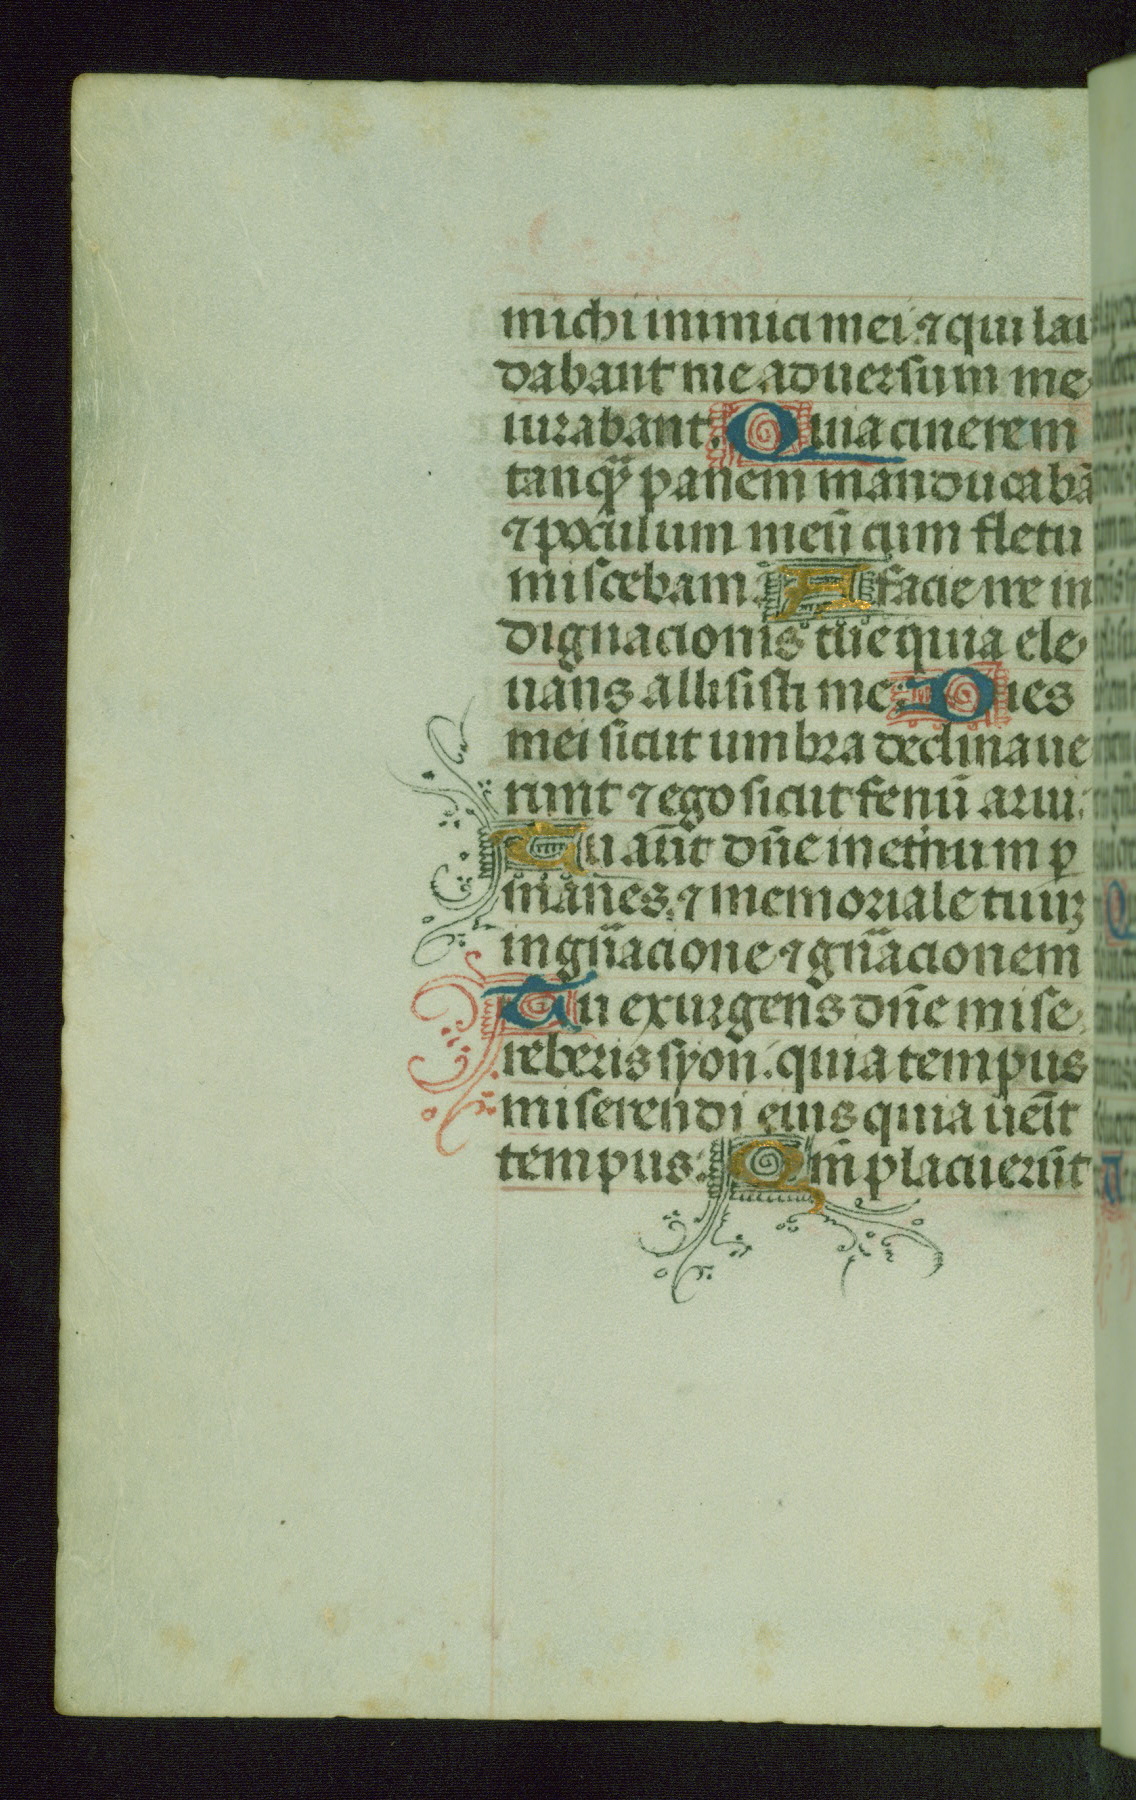 michi inimici mei: ⁊ qui lau
dabant me aduersum me
iurabant. Quia cinerem
tanq̄ panem manducabā
⁊ poculum meū cum fletu
miscebam. A facie ire in
dignacionis tue quia ele
uans allisisti me. Dies
mei sicut umbra declinaue
runt ⁊ ego sicut fenū arui.
Tu aūt dn̄e in etnum p
manes. ⁊ memoriale tuuꝫ
in gn̄acione ⁊ gn̄acionem
Tu exurgens dn̄e mise
reberis syon. quia tempus
miserendi eius quia uēit
tempus. Qm̄ placuerūt